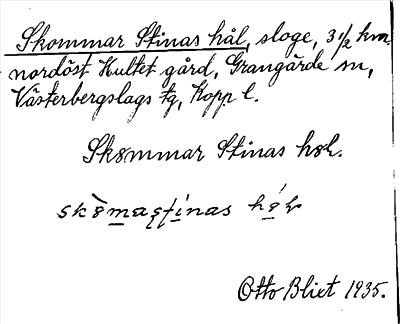 Skommar Stinas hål, sloge, 3 1/2 km.
nordöst Hultet gård, Grangärde sn,
Västerbergslags tg, Kopp. l.
Skommar Stinas hol.
Otto Blixt 1935.